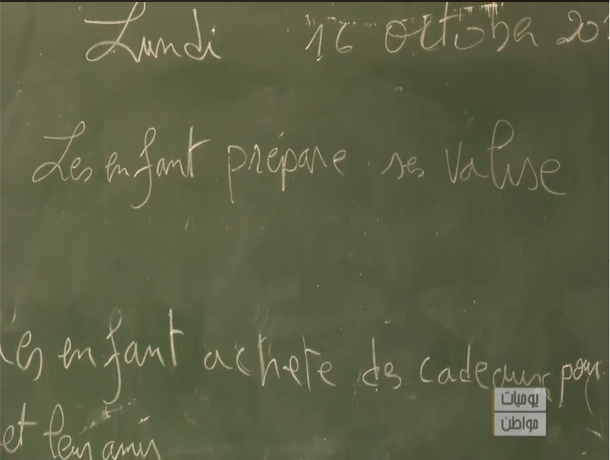 Lundi 16 octobre 20
Les enfant prépare ses valise
Les enfant achete des cadeaux pour
et leur amis
يوميات
مواطن